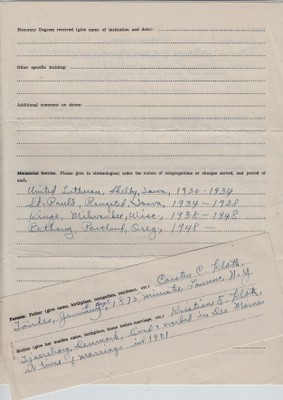 Honorary Degrees received (give name of institution and date):
Other specific training:
Additional comment on above:
Ministerial Service. Please give in chronological order the names of congregations or charges served, and period of each.
United Lutheran, Shelby, Iowa, 1930-1934
St. Paul's, Ringsted, Iowa, 1934-1938
Kings, Milwaukee, Wisc, 1938-1948
Bethany, Portland, Oreg, 1948-
Parents: Father (give name, birthplace, occupation, residence, etc.) Carsten C. Kloth,
Tondes, Germany, 1873, minister, Laurens, N.Y.
Mother (give her maiden name, birthplace, home before marriage, etc.) Kristiane E. Kloth,
Denmark, worked in Des Moines
at time of marriage in 1901